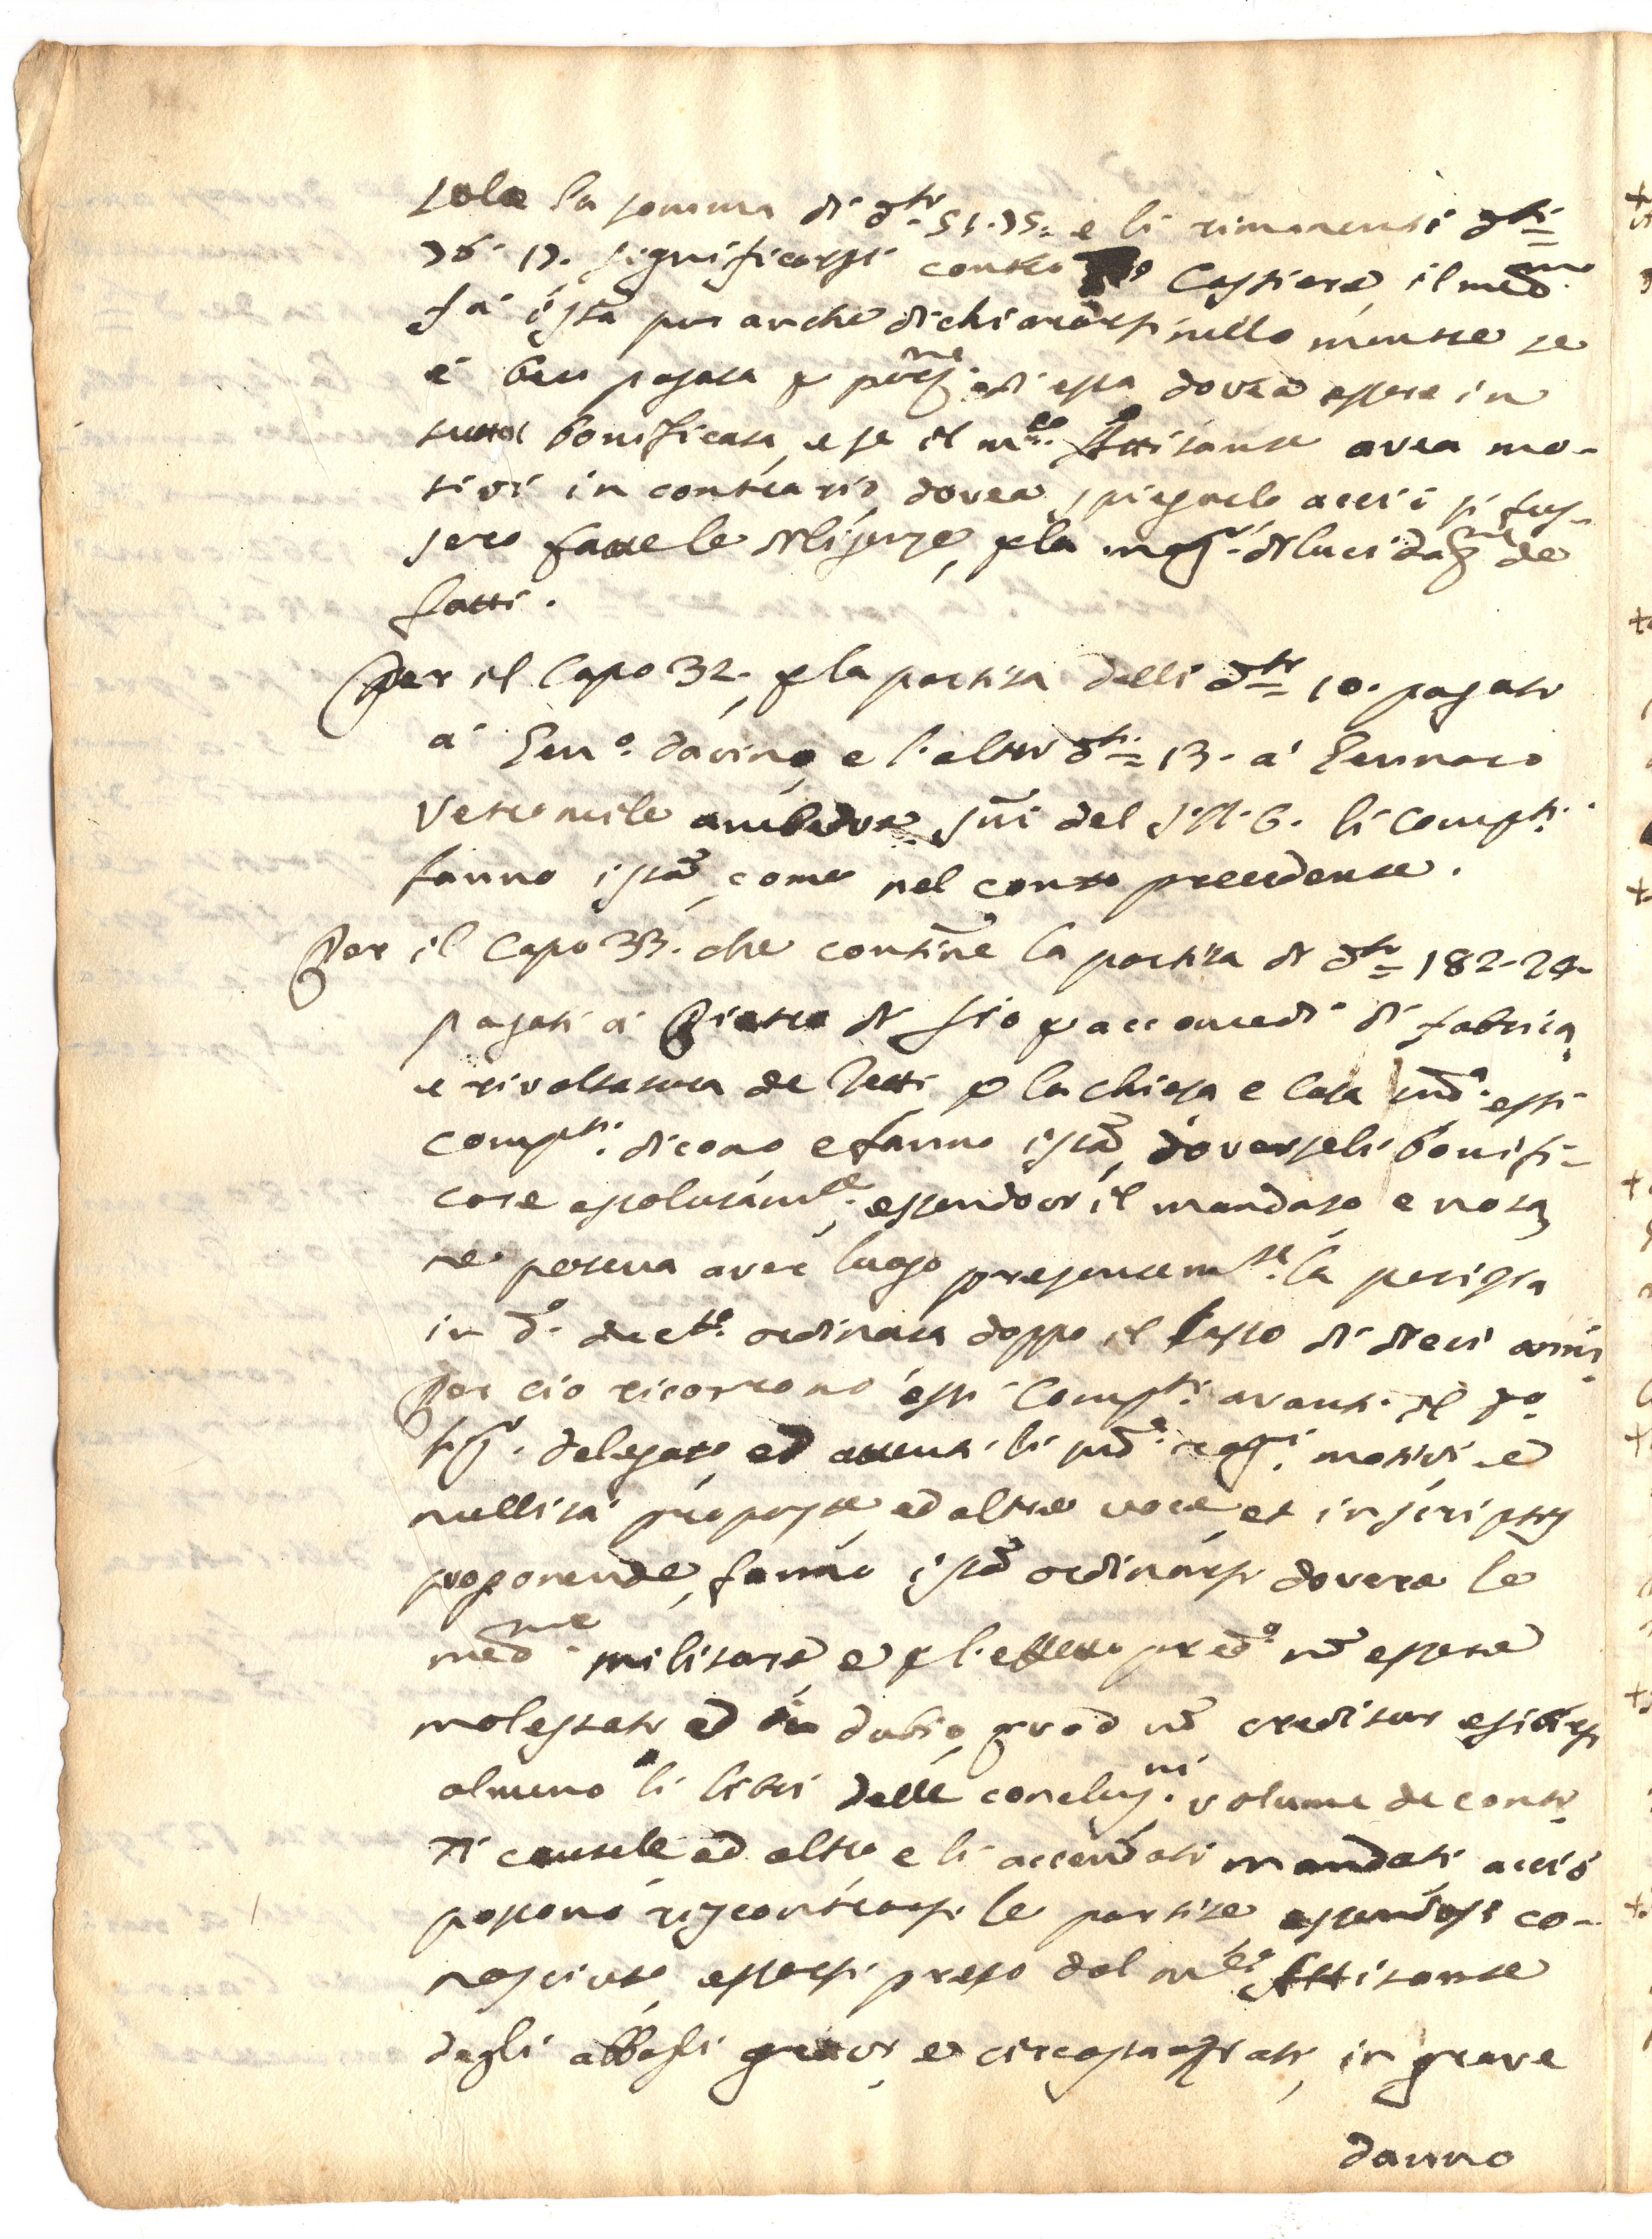 sola la somma di d.ti 51.35= e li rimanenti d.ti
36.17. significarsi contro Cassiere, il med.mo
fà ista pur anche dichiararsi nullo mentre se
è ben pagata p porz.ne di essa dovea essere in
tutto bonificata, e se il m.co Attisante avea mo-
tivi in contrario, dovea spiegarle acciò si fus-
sero fatte le diligenze, p la magg.r dilucidaz.ne de
fatti.
Per il Capo 32. p la partita delli d.ti 10. pagati
a' Genn.o davino, e l'altri d.ti 13. a' Gennaro
Vetromile ambedue del li Comp.ti
fanno ista, come nel conto precedente.
Per il Capo 33. che contine la partita di d.ti 182-24-
pagati a' Pietro di Iio p accomodi di fabrica,
e rivoltatura de tetti p la chiesa e Casa sud.a essi
comp.ti dicono e fanno ista, doverseli bonifi-
care assolutam.te, essendovi il mandato, e nota
ne poteva aver luogo presentem.te la perizia
in d.o decto. ordinata doppo il lasso di dieci anni,
Per ciò ricorrono essi Comp.ti avanti il d.o
Sig.r delegato, ed attenti li sud.i motivi, e
nullità proposte, ed altre voce, et in scriptis
proponende, fanno ista ordinarsi dovere le
med.me militare, e p l'effetto pred.o nō essere
molestati, ed in dubio, quod nō creditur esibirsi
almeno li libri delle conclus.ni volume de cont-
ti cautele ed altro e li accennati mandati, acciò
possono riscontrarsi le partite essendosi co-
nosciuto, essersi preso dal m.co Attisante
degli abbagli gravi, e in grave
danno